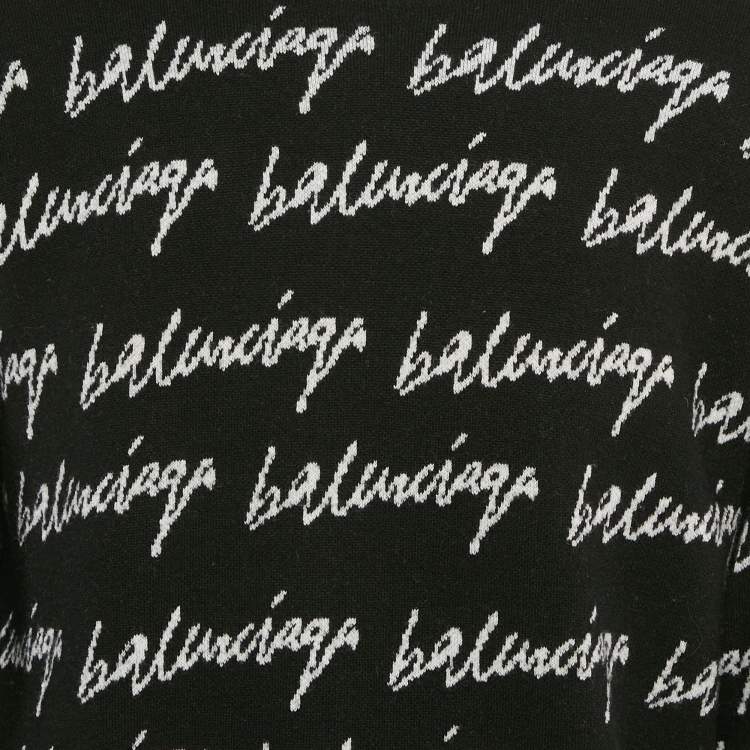 balenciaga balenciaga
balenciaga balenciaga balenciaga
balenciaga balenciaga
balenciaga balenciaga balenciaga
balenciaga balenciaga